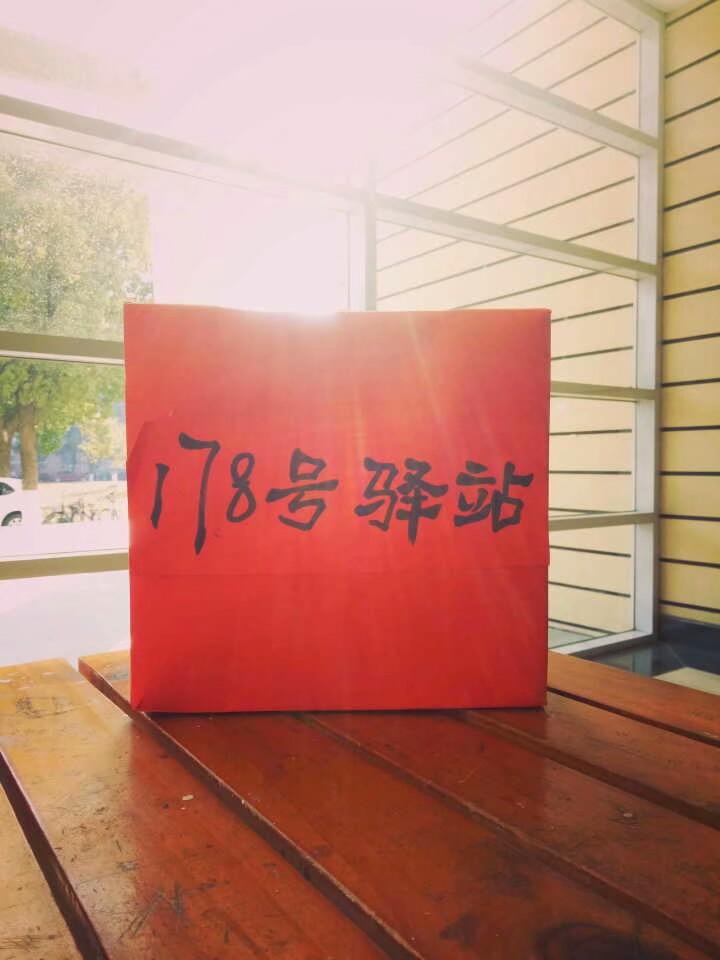 178号驿站